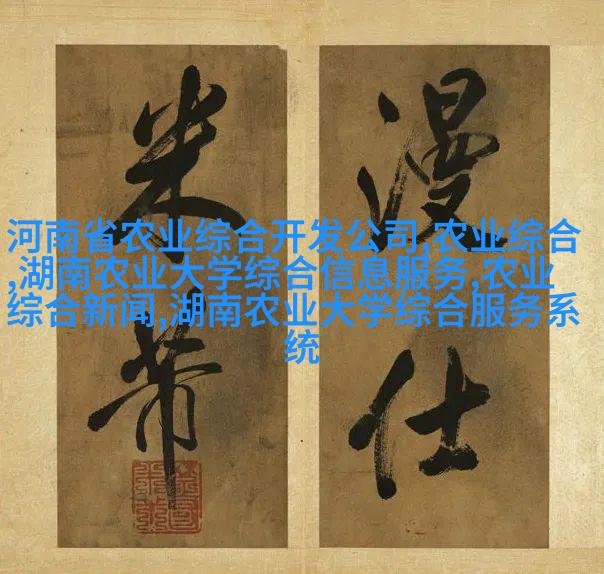 漫仕
米芾
河南省农业综合开发公司,农业综合
,湖南农业大学综合信息服务,农业
综合新闻,湖南农业大学综合服务系
统